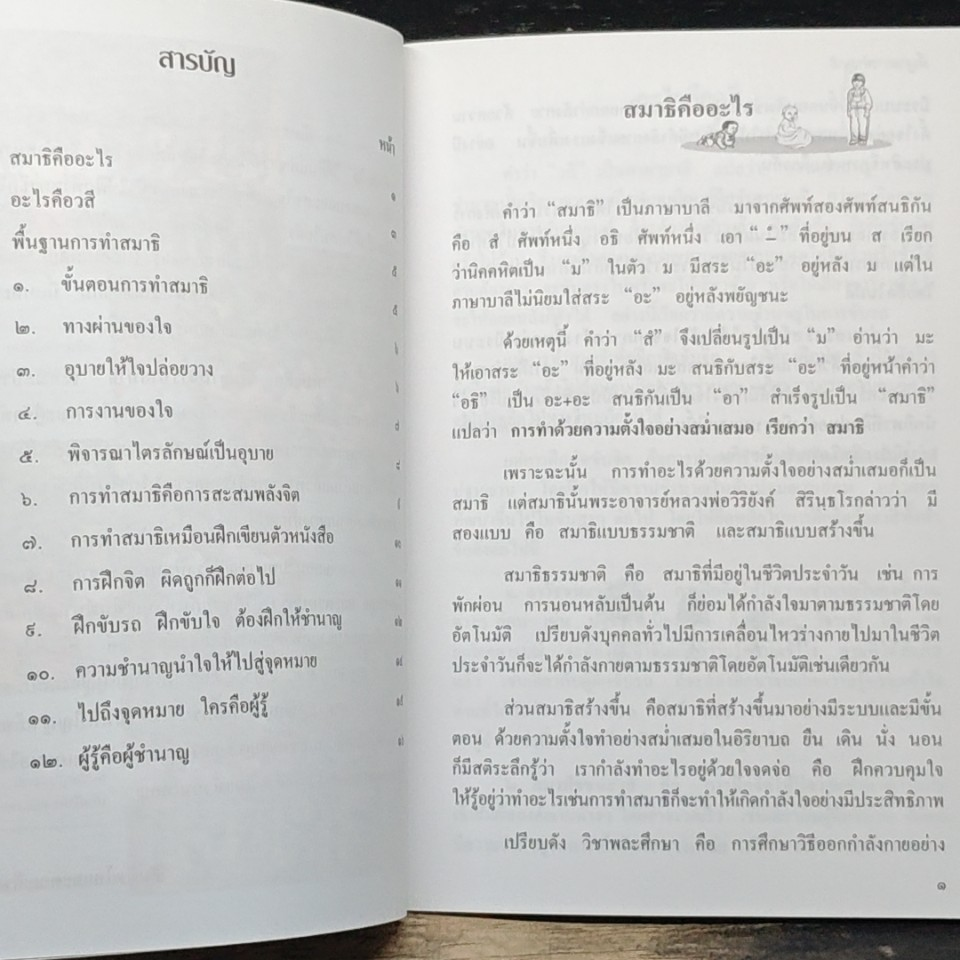 สารบัญ
หน้า
สมาธิคืออะไร ๑
อะไรคือวสี
พื้นฐานการทำสมาธิ
๑. ขั้นตอนการทำสมาธิ
๒. ทางผ่านของใจ
๓. อุบายให้ใจปล่อยวาง
๔. การงานของใจ
๕. พิจารณาไตรลักษณ์เป็นอุบาย
๖. การทำสมาธิคือการสะสมพลังจิต
๗. การทำสมาธิเหมือนฝึกเขียนตัวหนังสือ
๘. การฝึกจิต ผิดถูกก็ฝึกต่อไป
๙. ฝึกขับรถ ฝึกขับใจ ต้องฝึกให้ชำนาญ
๑๐. ความชำนาญนำใจให้ไปสู่จุดหมาย
๑๑. ไปถึงจุดหมาย ใครคือผู้รู้
๑๒. ผู้รู้คือผู้ชำนาญ
สมาธิคืออะไร
คำว่า “สมาธิ” เป็นภาษาบาลี มาจากศัพท์สองศัพท์สนธิกัน
คือ สํ ศัพท์หนึ่ง อธิ ศัพท์หนึ่ง เอา “ ํ” ที่อยู่บน ส เรียก
ว่านิคคหิตเป็น “ม” ในตัว ม มีสระ “อะ” อยู่หลัง ม แต่ใน
ภาษาบาลีไม่นิยมใส่สระ “อะ” อยู่หลังพยัญชนะ
ด้วยเหตุนี้ คำว่า “สํ” จึงเปลี่ยนรูปเป็น “ม” อ่านว่า มะ
ให้เอาสระ “อะ” ที่อยู่หลัง มะ สนธิกับสระ “อะ” ที่อยู่หน้าคำว่า
“อธิ” เป็น อะ+อะ สนธิกันเป็น “อา” สำเร็จรูปเป็น “สมาธิ”
แปลว่า การทำด้วยความตั้งใจอย่างสม่ำเสมอ เรียกว่า สมาธิ
เพราะฉะนั้น การทำอะไรด้วยความตั้งใจอย่างสม่ำเสมอก็เป็น
สมาธิ แต่สมาธินั้นพระอาจารย์หลวงพ่อวิริยังค์ สิรินฺธโรกล่าวว่า มี
สองแบบ คือ สมาธิแบบธรรมชาติ และสมาธิแบบสร้างขึ้น
สมาธิธรรมชาติ คือ สมาธิที่มีอยู่ในชีวิตประจำวัน เช่น การ
พักผ่อน การนอนหลับเป็นต้น ก็ย่อมได้กำลังใจมาตามธรรมชาติโดย
อัตโนมัติ เปรียบดังบุคคลทั่วไปมีการเคลื่อนไหวร่างกายไปมาในชีวิต
ประจำวันก็จะได้กำลังกายตามธรรมชาติโดยอัตโนมัติเช่นเดียวกัน
ส่วนสมาธิสร้างขึ้น คือสมาธิที่สร้างขึ้นมาอย่างมีระบบและมีขั้น
ตอน ด้วยความตั้งใจทำอย่างสม่ำเสมอในอิริยาบถ ยืน เดิน นั่ง นอน
ก็มีสติระลึกรู้ว่า เรากำลังทำอะไรอยู่ด้วยใจจดจ่อ คือ ฝึกควบคุมใจ
ให้รู้อยู่ว่าทำอะไรเช่นการทำสมาธิก็จะทำให้เกิดกำลังใจอย่างมีประสิทธิภาพ
เปรียบดัง วิชาพละศึกษา คือ การศึกษาวิธีออกกำลังกายอย่าง
๑